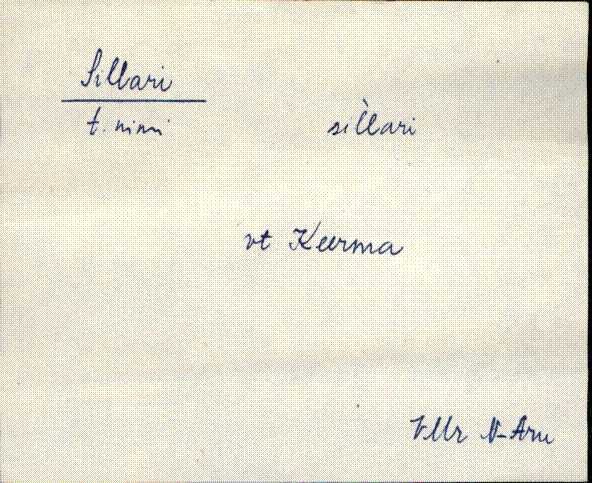 Sillari
t. nimi sìllari
vt Keerma
VMr N-Aru